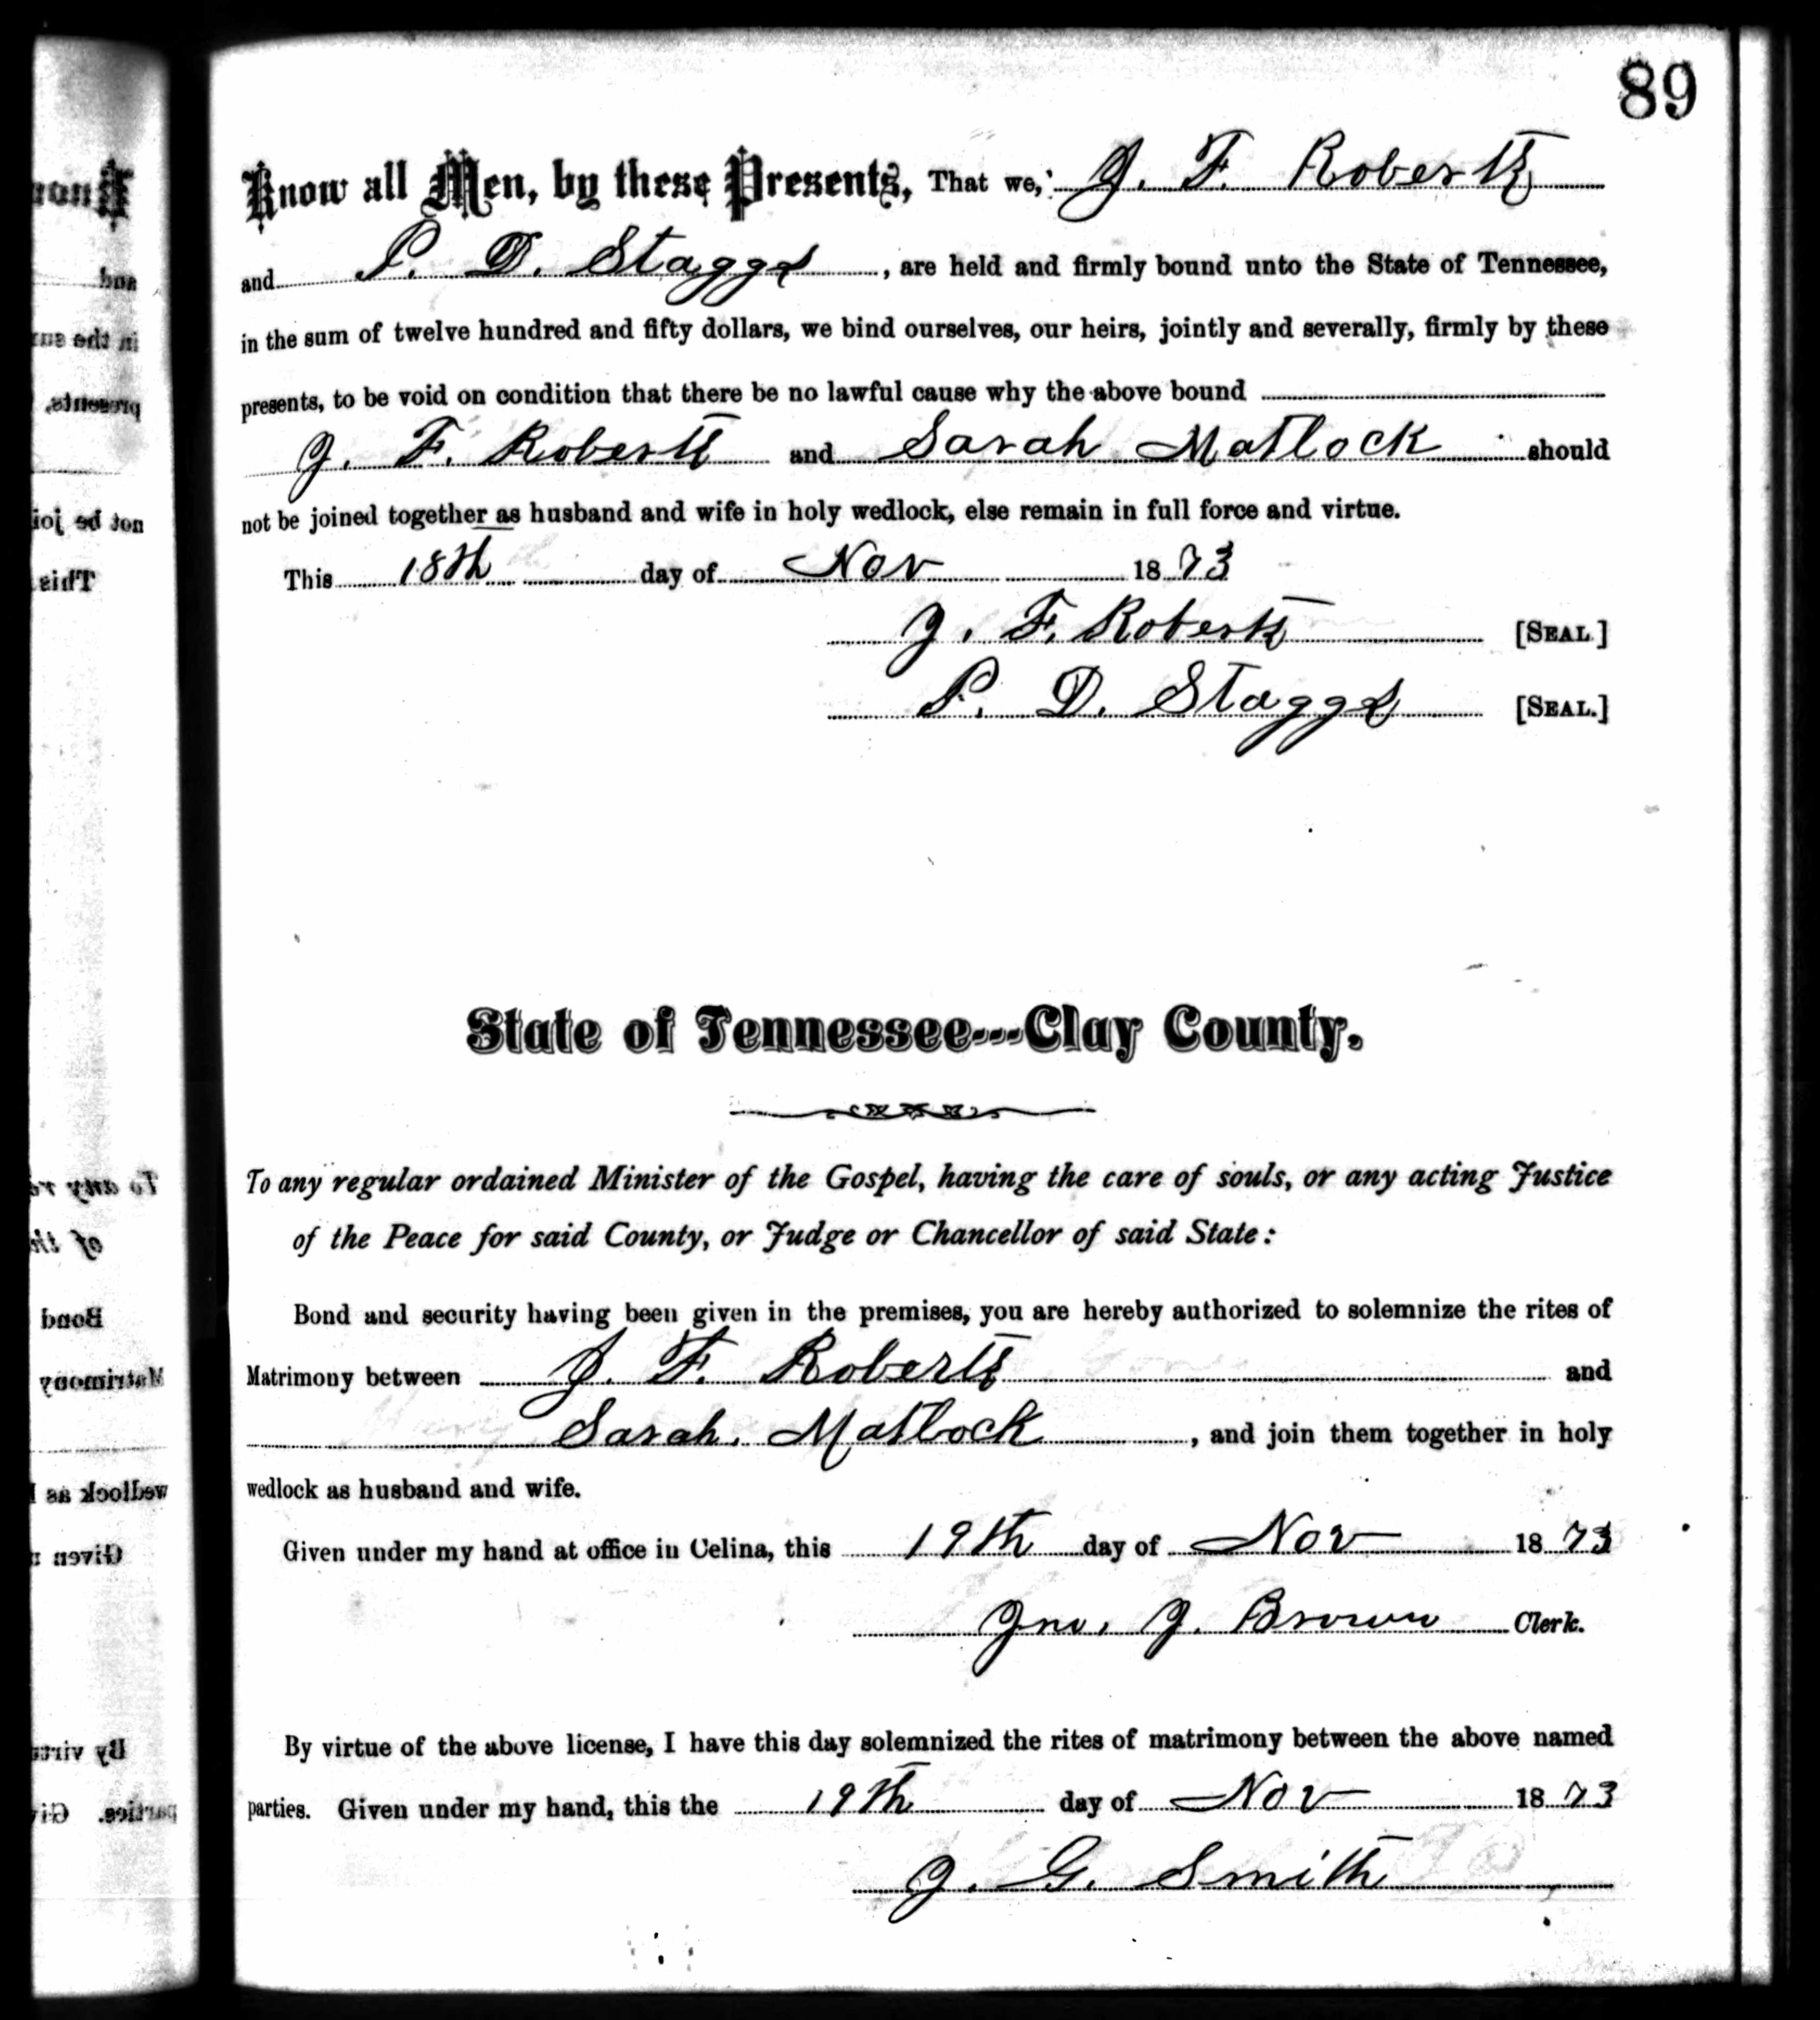 89
Know all Men, by these Presents, That we, J. F. Roberts
and P. D. Staggs, are held and firmly bound unto the State of Tennessee,
in the sum of twelve hundred and fifty dollars, we bind ourselves, our heirs, jointly and severally, firmly by these
presents, to be void on condition that there be no lawful cause why the above bound
J. F. Roberts and Sarah Matlock should
not be joined together as husband and wife in holy wedlock, else remain in full force and virtue.
This 18th day of Nov 1873
J. F. Roberts [SEAL.]
P. D. Staggs [SEAL.]
State of Tennessee---Clay County.
To any regular ordained Minister of the Gospel, having the care of souls, or any acting Justice
of the Peace for said County, or Judge or Chancellor of said State:
Bond and security having been given in the premises, you are hereby authorized to solemnize the rites of
Matrimony between J. F. Roberts and
Sarah. Matlock, and join them together in holy
wedlock as husband and wife.
Given under my hand at office in Celina, this 19th day of Nov 1873
Jno. J. Brown Clerk.
By virtue of the above license, I have this day solemnized the rites of matrimony between the above named
parties. Given under my hand, this the 19th day of Nov 1873
J. G. Smith